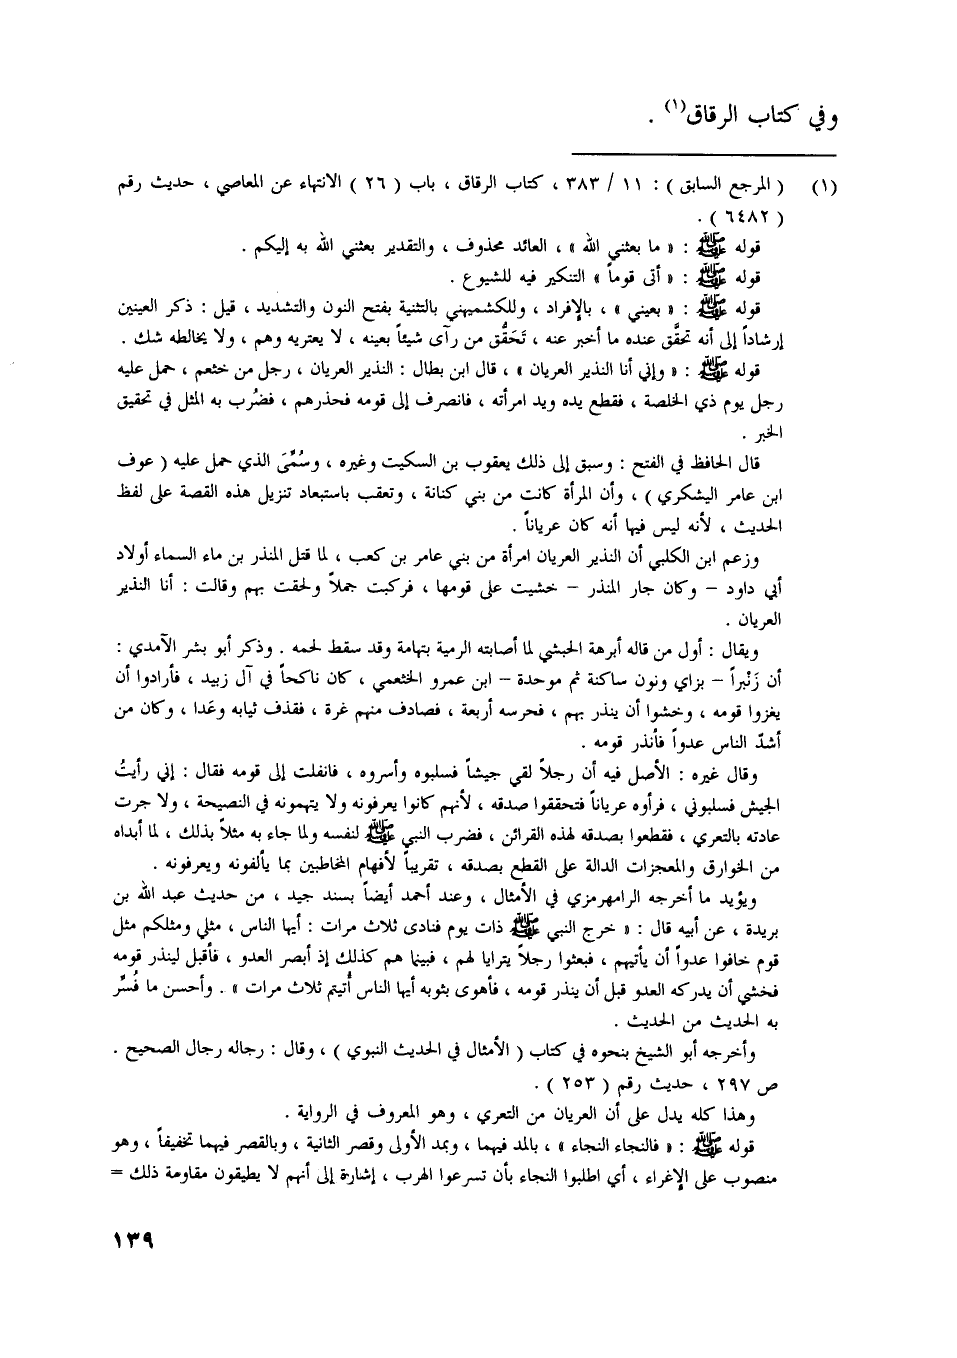 وفي كتاب الرقاق(١) .
(١) ( المرجع السابق ) : ١١ / ٣٨٣ ، كتاب الرقاق ، باب ( ٢٦ ) الانتهاء عن المعاصي ، حديث رقم
( ٦٤٨٢ ) .
قوله ﷺ : « ما بعثني الله » ، العائد محذوف ، والتقدير بعثني الله به إليكم .
قوله ﷺ : « أتى قوماً » التنكير فيه للشيوع .
قوله ﷺ : « بعيني » ، بالإفراد ، وللكشميهني بالتثنية بفتح النون والتشديد ، قيل : ذكر العينين
إرشاداً إلى أنه تحقَّق عنده ما أخبر عنه ، تَحَقُّق من رآى شيئاً بعينه ، لا يعتريه وهم ، ولا يخالطه شك .
قوله ﷺ : « وإني أنا النذير العريان » ، قال ابن بطال : النذير العريان ، رجل من خثعم ، حمل عليه
رجل يوم ذي الخلصة ، فقطع يده ويد امرأته ، فانصرف إلى قومه فحذرهم ، فضُرب به المثل في تحقيق
الخبر .
قال الحافظ في الفتح : وسبق إلى ذلك يعقوب بن السكيت وغيره ، وسُمِّىَ الذي حمل عليه ( عوف
ابن عامر اليشكري ) ، وأن المرأة كانت من بني كنانة ، وتعقب باستبعاد تنزيل هذه القصة على لفظ
الحديث ، لأنه ليس فيها أنه كان عرياناً .
وزعم ابن الكلبي أن النذير العريان امرأة من بني عامر بن كعب ، لما قتل المنذر بن ماء السماء أولاد
أبي داود – وكان جار المنذر – خشيت على قومها ، فركبت جملاً ولحقت بهم وقالت : أنا النذير
العريان .
ويقال : أول من قاله أبرهة الحبشي لما أصابته الرمية بتهامة وقد سقط لحمه . وذكر أبو بشر الآمدي :
أن زَنْبراً – بزاي ونون ساكنة ثم موحدة – ابن عمرو الخثعمي ، كان ناكحاً في آل زبيد ، فأرادوا أن
يغزوا قومه ، وخشوا أن ينذر بهم ، فحرسه أربعة ، فصادف منهم غرة ، فقذف ثيابه وعَدا ، وكان من
أشدّ الناس عدواً فأنذر قومه .
وقال غيره : الأصل فيه أن رجلاً لقي جيشاً فسلبوه وأسروه ، فانفلت إلى قومه فقال : إني رأيتُ
الجيش فسلبوني ، فرأوه عرياناً فتحققوا صدقه ، لأنهم كانوا يعرفونه ولا يتهمونه في النصيحة ، ولا جرت
عادته بالتعري ، فقطعوا بصدقه لهذه القرائن ، فضرب النبي ﷺ لنفسه ولما جاء به مثلاً بذلك ، لما أبداه
من الخوارق والمعجزات الدالة على القطع بصدقه ، تقريباً لأفهام المخاطبين بما يألفونه ويعرفونه .
ويؤيد ما أخرجه الرامهرمزي في الأمثال ، وعند أحمد أيضاً بسند جيد ، من حديث عبد الله بن
بريدة ، عن أبيه قال : « خرج النبي ﷺ ذات يوم فنادى ثلاث مرات : أيها الناس ، مثلي ومثلكم مثل
قوم خافوا عدواً أن يأتيهم ، فبعثوا رجلاً يترايا لهم ، فبينما هم كذلك إذ أبصر العدو ، فأقبل لينذر قومه
فخشي أن يدركه العدو قبل أن ينذر قومه ، فأهوى بثوبه أيها الناس أُتيتم ثلاث مرات » . وأحسن ما فُسِّر
به الحديث من الحديث .
وأخرجه أبو الشيخ بنحوه في كتاب ( الأمثال في الحديث النبوي ) ، وقال : رجاله رجال الصحيح .
ص ٢٩٧ ، حديث رقم ( ٢٥٣ ) .
وهذا كله يدل على أن العريان من التعري ، وهو المعروف في الرواية .
قوله ﷺ : « فالنجاء النجاء » ، بالمد فيهما ، وبمد الأولى وقصر الثانية ، وبالقصر فيهما تخفيفاً ، وهو
منصوب على الإغراء ، أي اطلبوا النجاء بأن تسرعوا الهرب ، إشارة إلى أنهم لا يطيقون مقاومة ذلك =
١٣٩